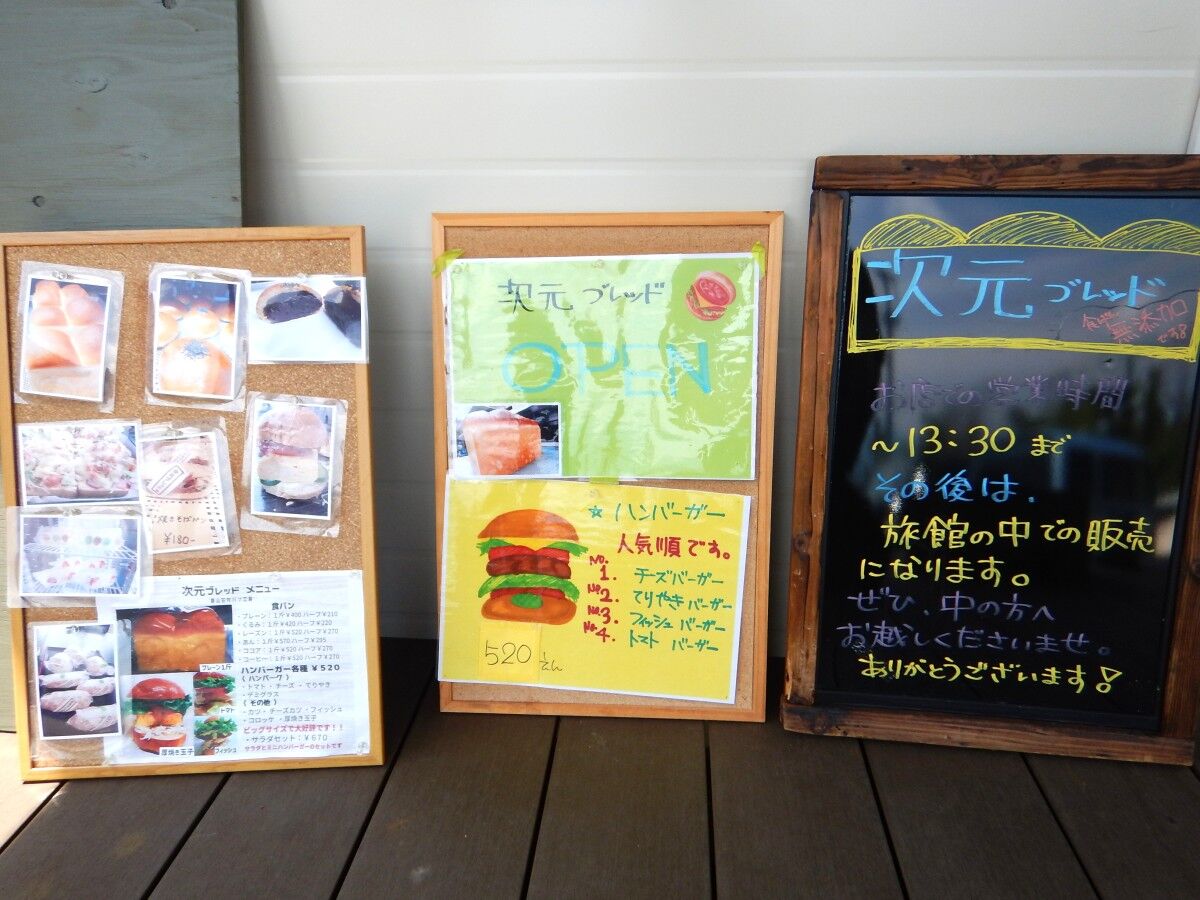 焼きそばパン
¥180-
次元ブレッド メニュー
食パン
・プレーン：1斤¥400 ハーフ¥210
・くるみ：1斤¥420 ハーフ¥220
・レーズン：1斤¥520 ハーフ¥270
・あん：1斤¥570 ハーフ¥295
・ココア：1斤¥520 ハーフ¥270
・コーヒー：1斤¥520 ハーフ¥270
プレーン1斤
ハンバーガー各種 ¥520
(ハンバーグ)
・トマト・チーズ・てりやき
・デミグラス
トマト
(その他)
・カツ・チーズカツ・フィッシュ
・コロッケ・厚焼き玉子
ビッグサイズで大好評です！！
・サラダセット：¥670
サラダとミニハンバーガーのセットです
厚焼き玉子
フィッシュ
次元 ブレッド
OPEN
☆ ハンバーガー
人気順です。
No.1. チーズバーガー
No.2. てりやきバーガー
No.3. フィッシュバーガー
No.4. トマト バーガー
520 えん
次元 ブレッド
無添加
お店での営業時間
～13:30 まで
その後は、
旅館の中での販売
になります。
ぜひ、中の方へ
お越しくださいませ。
ありがとうございます！